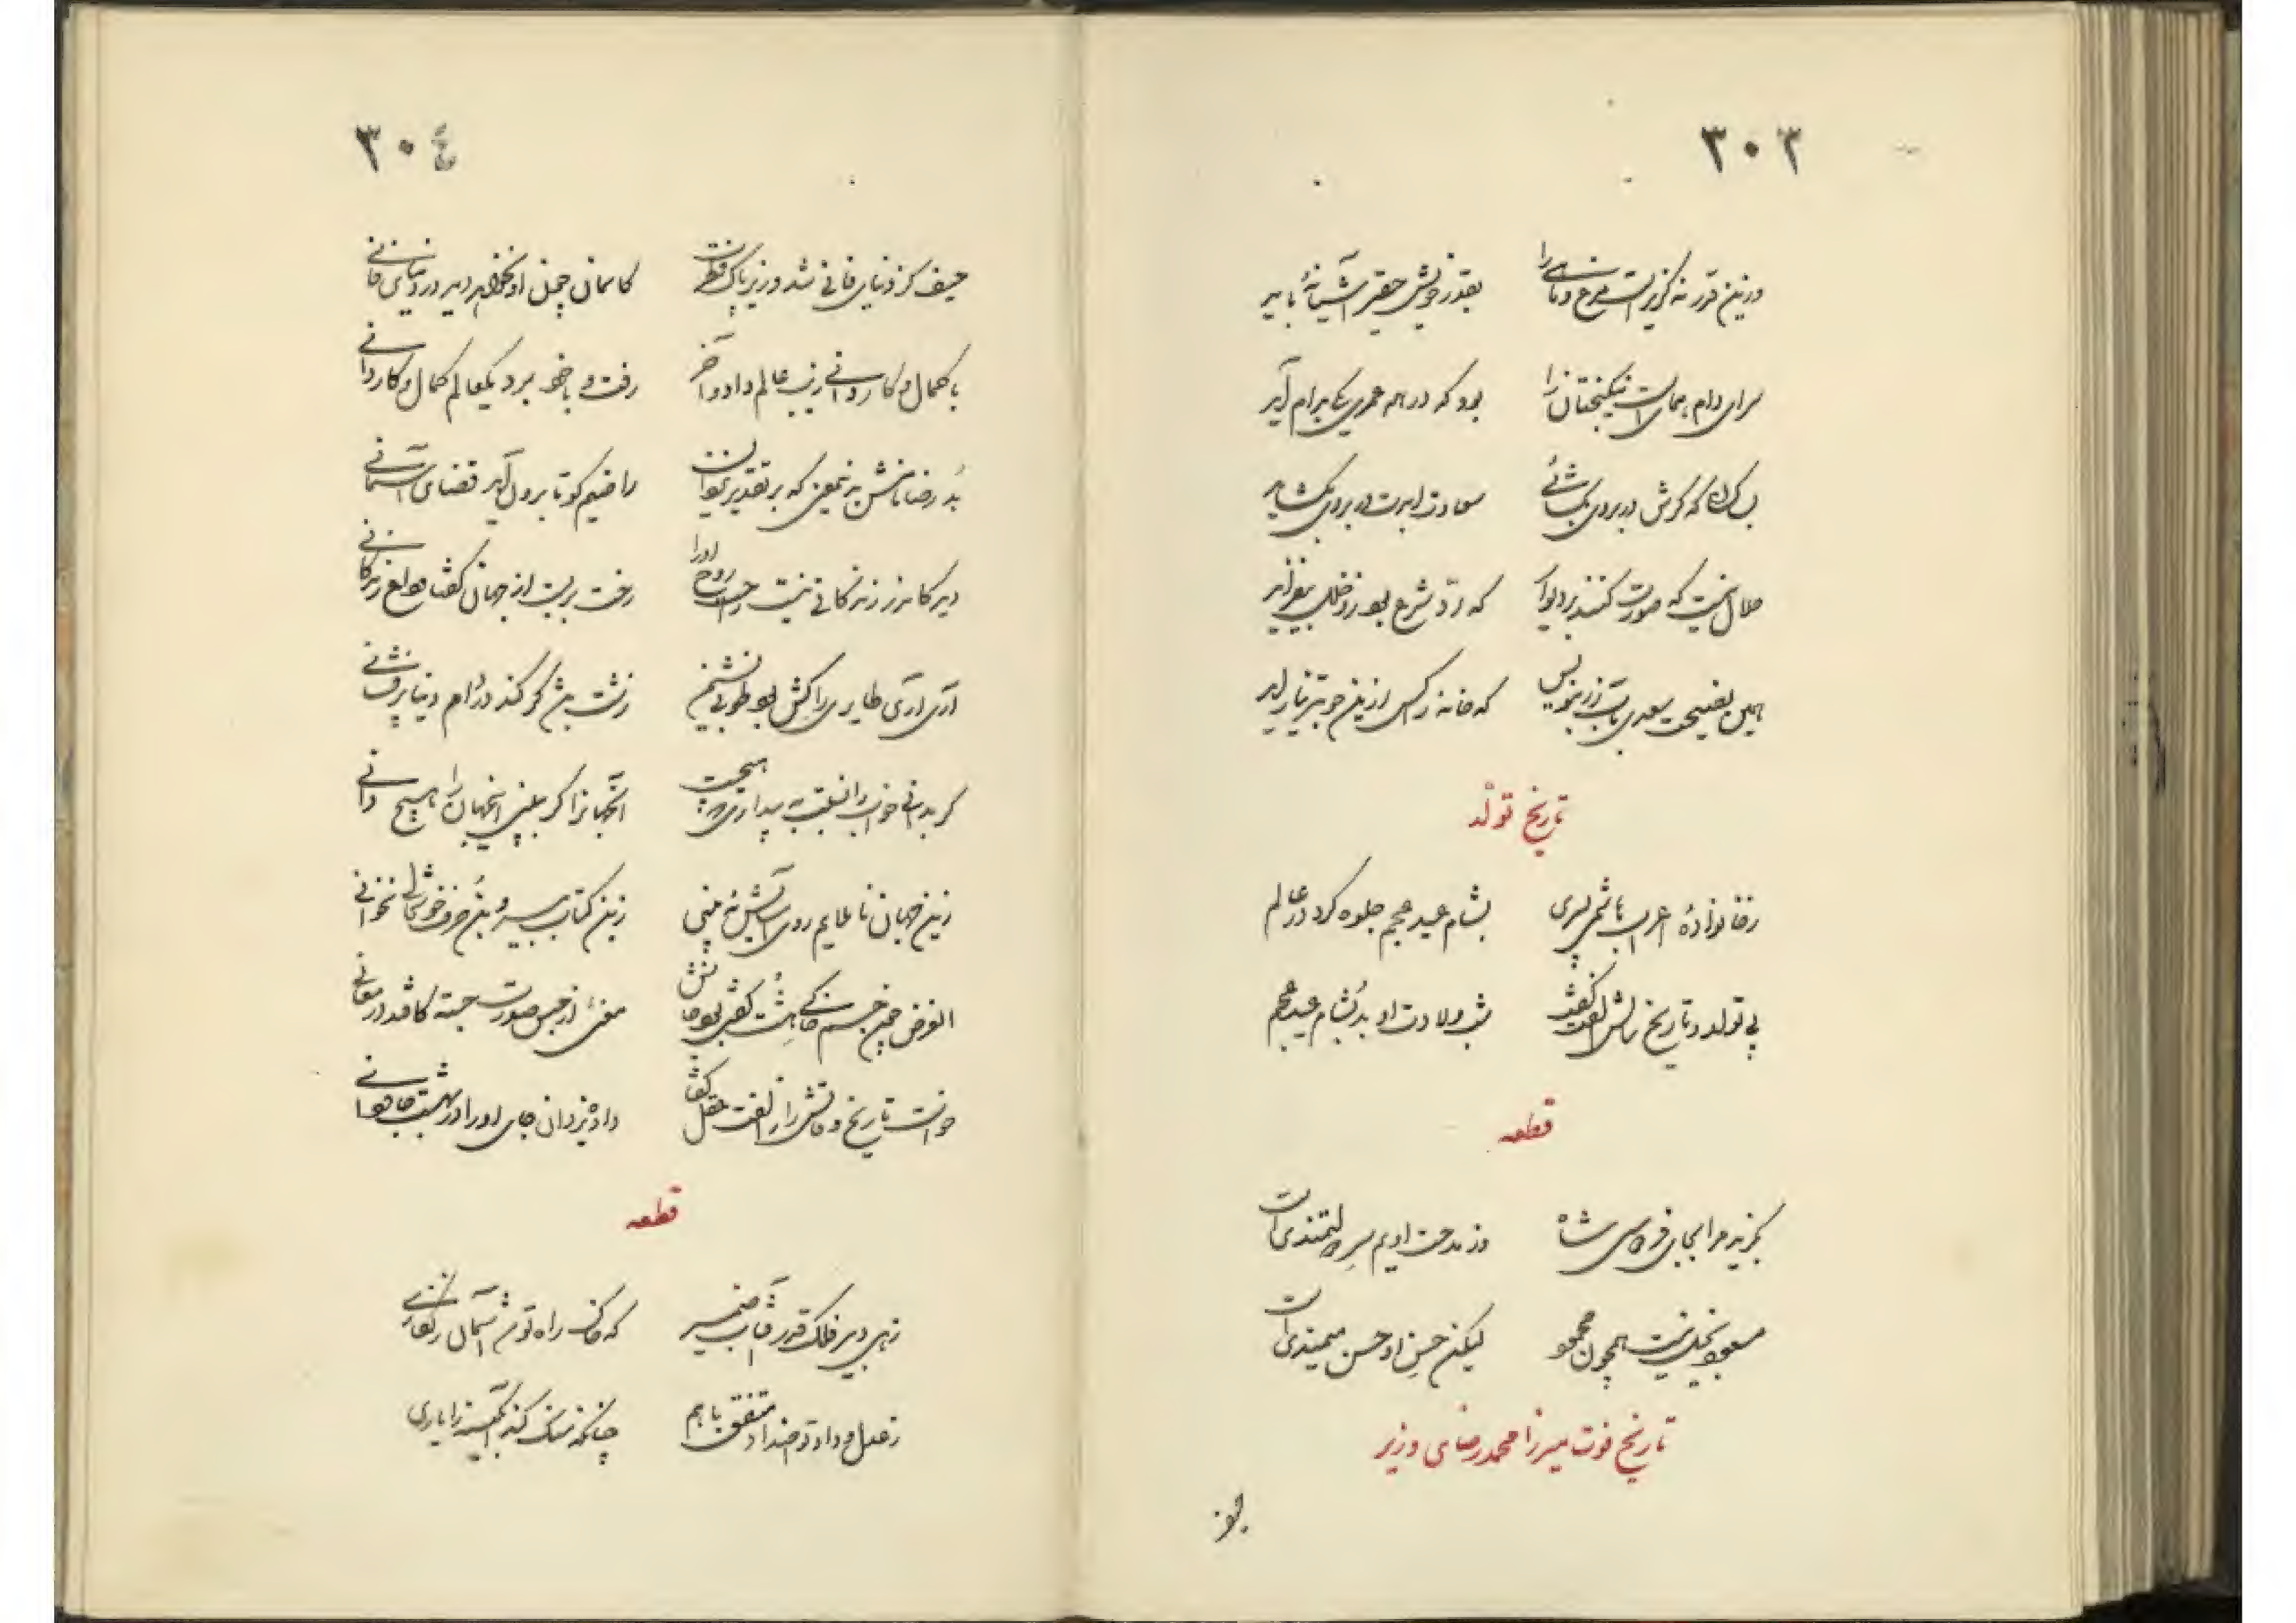 ٣٠٣
درین قدر نه گزیرست مرغ و ماهی را بقدر خویش حقیر آشیانهٔ باید
سرای دام همای است نیکبختان را بود که در همه عمری یکی بدام آید
که گرش در بروی بگشائی سعادت ابدت در بروی بگشاید
حلال نیست که صورت کنند بر دیوار که ردّ شرع بود زو خلل بیفزاید
همین نصیحت سعدی بآب زر بنویس که خانه زر کس ازین خوبتر نیاراید
تاریخ تولّد
ز خانوادهٔ اعراب هاشمی پسری بشام عید عجم جلوه کرد در عالم
پی تولد و تاریخ سالش الفت گفت شب ولادت او بُد بشام عید عجم
قطعه
بگزید مرا بجای فردوسی شاه وز مدحت اویم سرِ دولتمندیست
مسعود بخیل نیست همچون محمود لیکن حسنِ او حسن میمندیست
تاریخ فوت میرزا محمد رضای وزیر
٣٠٤
حیف کز دنیای فانی شد وزیر پاک فطرت کاسمان چون او نخواهد دید در دنیای فانی
با کمال و کاردانی زیب عالم داد و آخر رفت و با خود برد یکعالم کمال و کاردانی
بُد رضا نامش به یمعنی که بر تقدیر یزدان راضیم گو تا برون آید قضای آسمانی
دید کاندر زندگانی نیست راحت روح او را رخت بربست از جهان گفتا وداع زندگانی
آری آری طایری را کش بود طوبی نشیمن زشت باشد گر کند در دام دنیا پرفشانی
گر بدانی خواب را نسبت به بیداری چه هیچست آنجهانرا گر ببینی اینجهان را هیچ دانی
زین جهان ناملایم روی آسایش نه بینی زین کتاب بی سر و بن حرف خوشحالی نخوانی
الغرض چون جسم خاکی هشت گفتی بود جانش معنیٔ از حبس صورت جسته کافتد در معانی
خواست تاریخ وفاتش را ز الفت عقل گفتا داد یزدان جای او را در بهشت جاودانی
قطعه
زهی دبیر فلک قدر آفتاب ضمیر که خاک راه تو شد آسمان زنگاری
ز عدل و داد تو اضداد متفق با هم چنانکه سنگ کند آبگینه را یاری